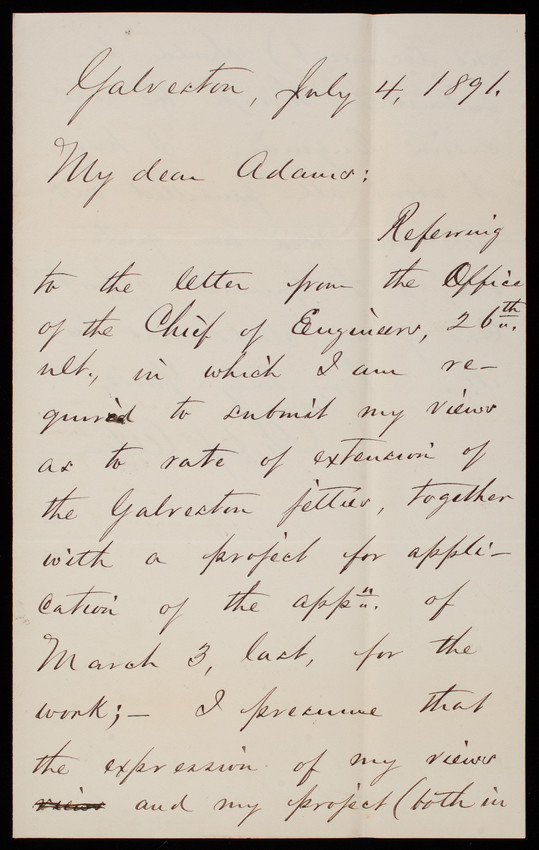 Galveston, July 4, 1891.
My dear Adams:
Referring
to the letter from the Office
of the Chief of Engineers, 26th.
ult., in which I am re-
quired to submit my views
as to rate of extension of
the Galveston jetties, together
with a project for appli-
cation of the appn. of
March 3, last, for the
work; — I presume that
the expression of my views
views and my project (both in